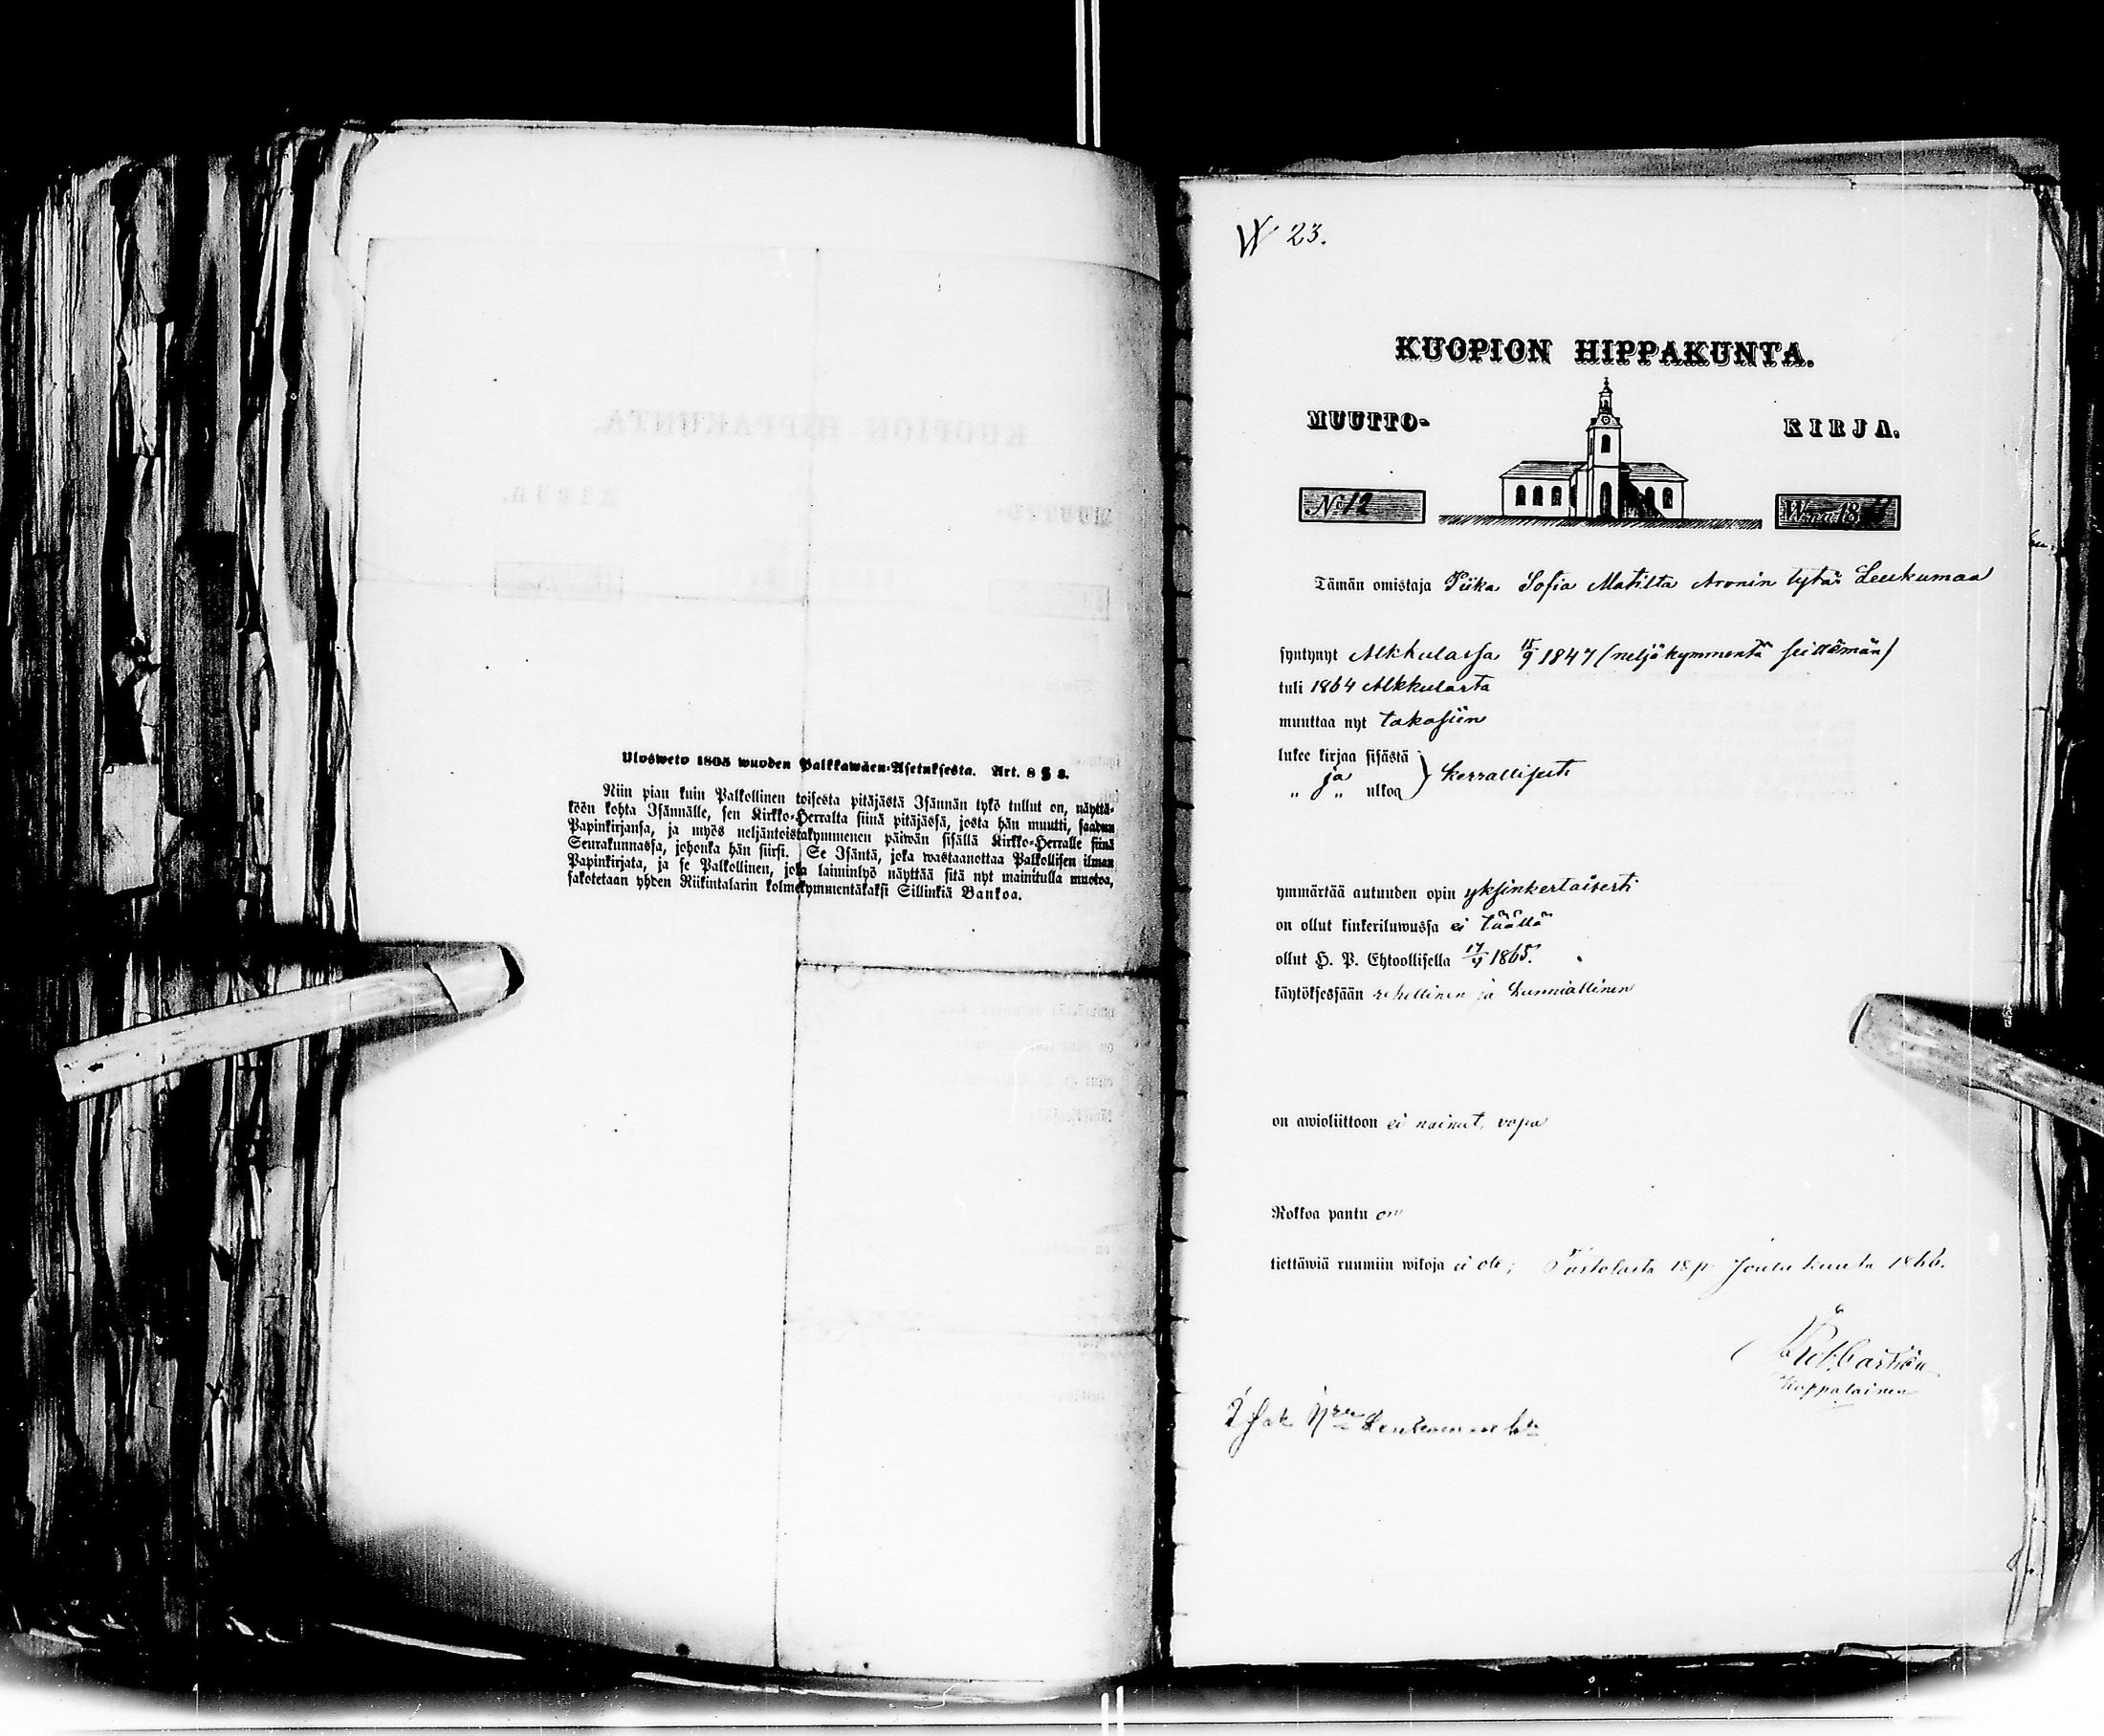 Ulosweto 1805 wuoden Palkkawäen-Asetuksesta. Art. 8 § 3.
Niin pian kuin Palkollinen toisesta pitäjästä Isännän tykö tullut on, näyttä-
köön kohta Isännälle, sen Kirkko-Herralta siinä pitäjässä, josta hän muutti, saadun
Papinkirjansa, ja myös neljäntoistakymmenen päiwän sisällä Kirkko-Herralle siinä
Seurakunnassa, johonka hän siirsi. Se Isäntä, joka wastaanottaa Palkollisen ilman
Papinkirjata, ja se Palkollinen, joka laiminlyö näyttää sitä nyt mainitulla muotoa,
sakotetaan yhden Riikintalarin kolmekymmentäkaksi Sillinkiä Bankoa.
N 23.
KUOPION HIPPAKUNTA.
MUUTTO- KIRJA.
No 12 W:na 18
Tämän omistaja Piika Sofia Matilta Aronin tytär Leukumaa
syntynyt Alkkulassa 15/9 1847 (neljäkymmentä seittämän)
tuli 1864 Alkkulasta
muuttaa nyt takasiin
lukee kirjaa sisästä
„ ja „ ulkoa } kerrallisesti
ymmärtää autuuden opin yksinkertaisesti
on ollut kinkeriluwussa ei täällä
ollut H. P. Ehtoollisella 17/9 1865.
käytöksessään rehellinen ja kunniallinen
on awioliittoon ei nainut, vapa
Rokkoa pantu on
tiettäwiä ruumiin wikoja ei ole; 18 p. Joulukuuta 1866.
Kappalainen